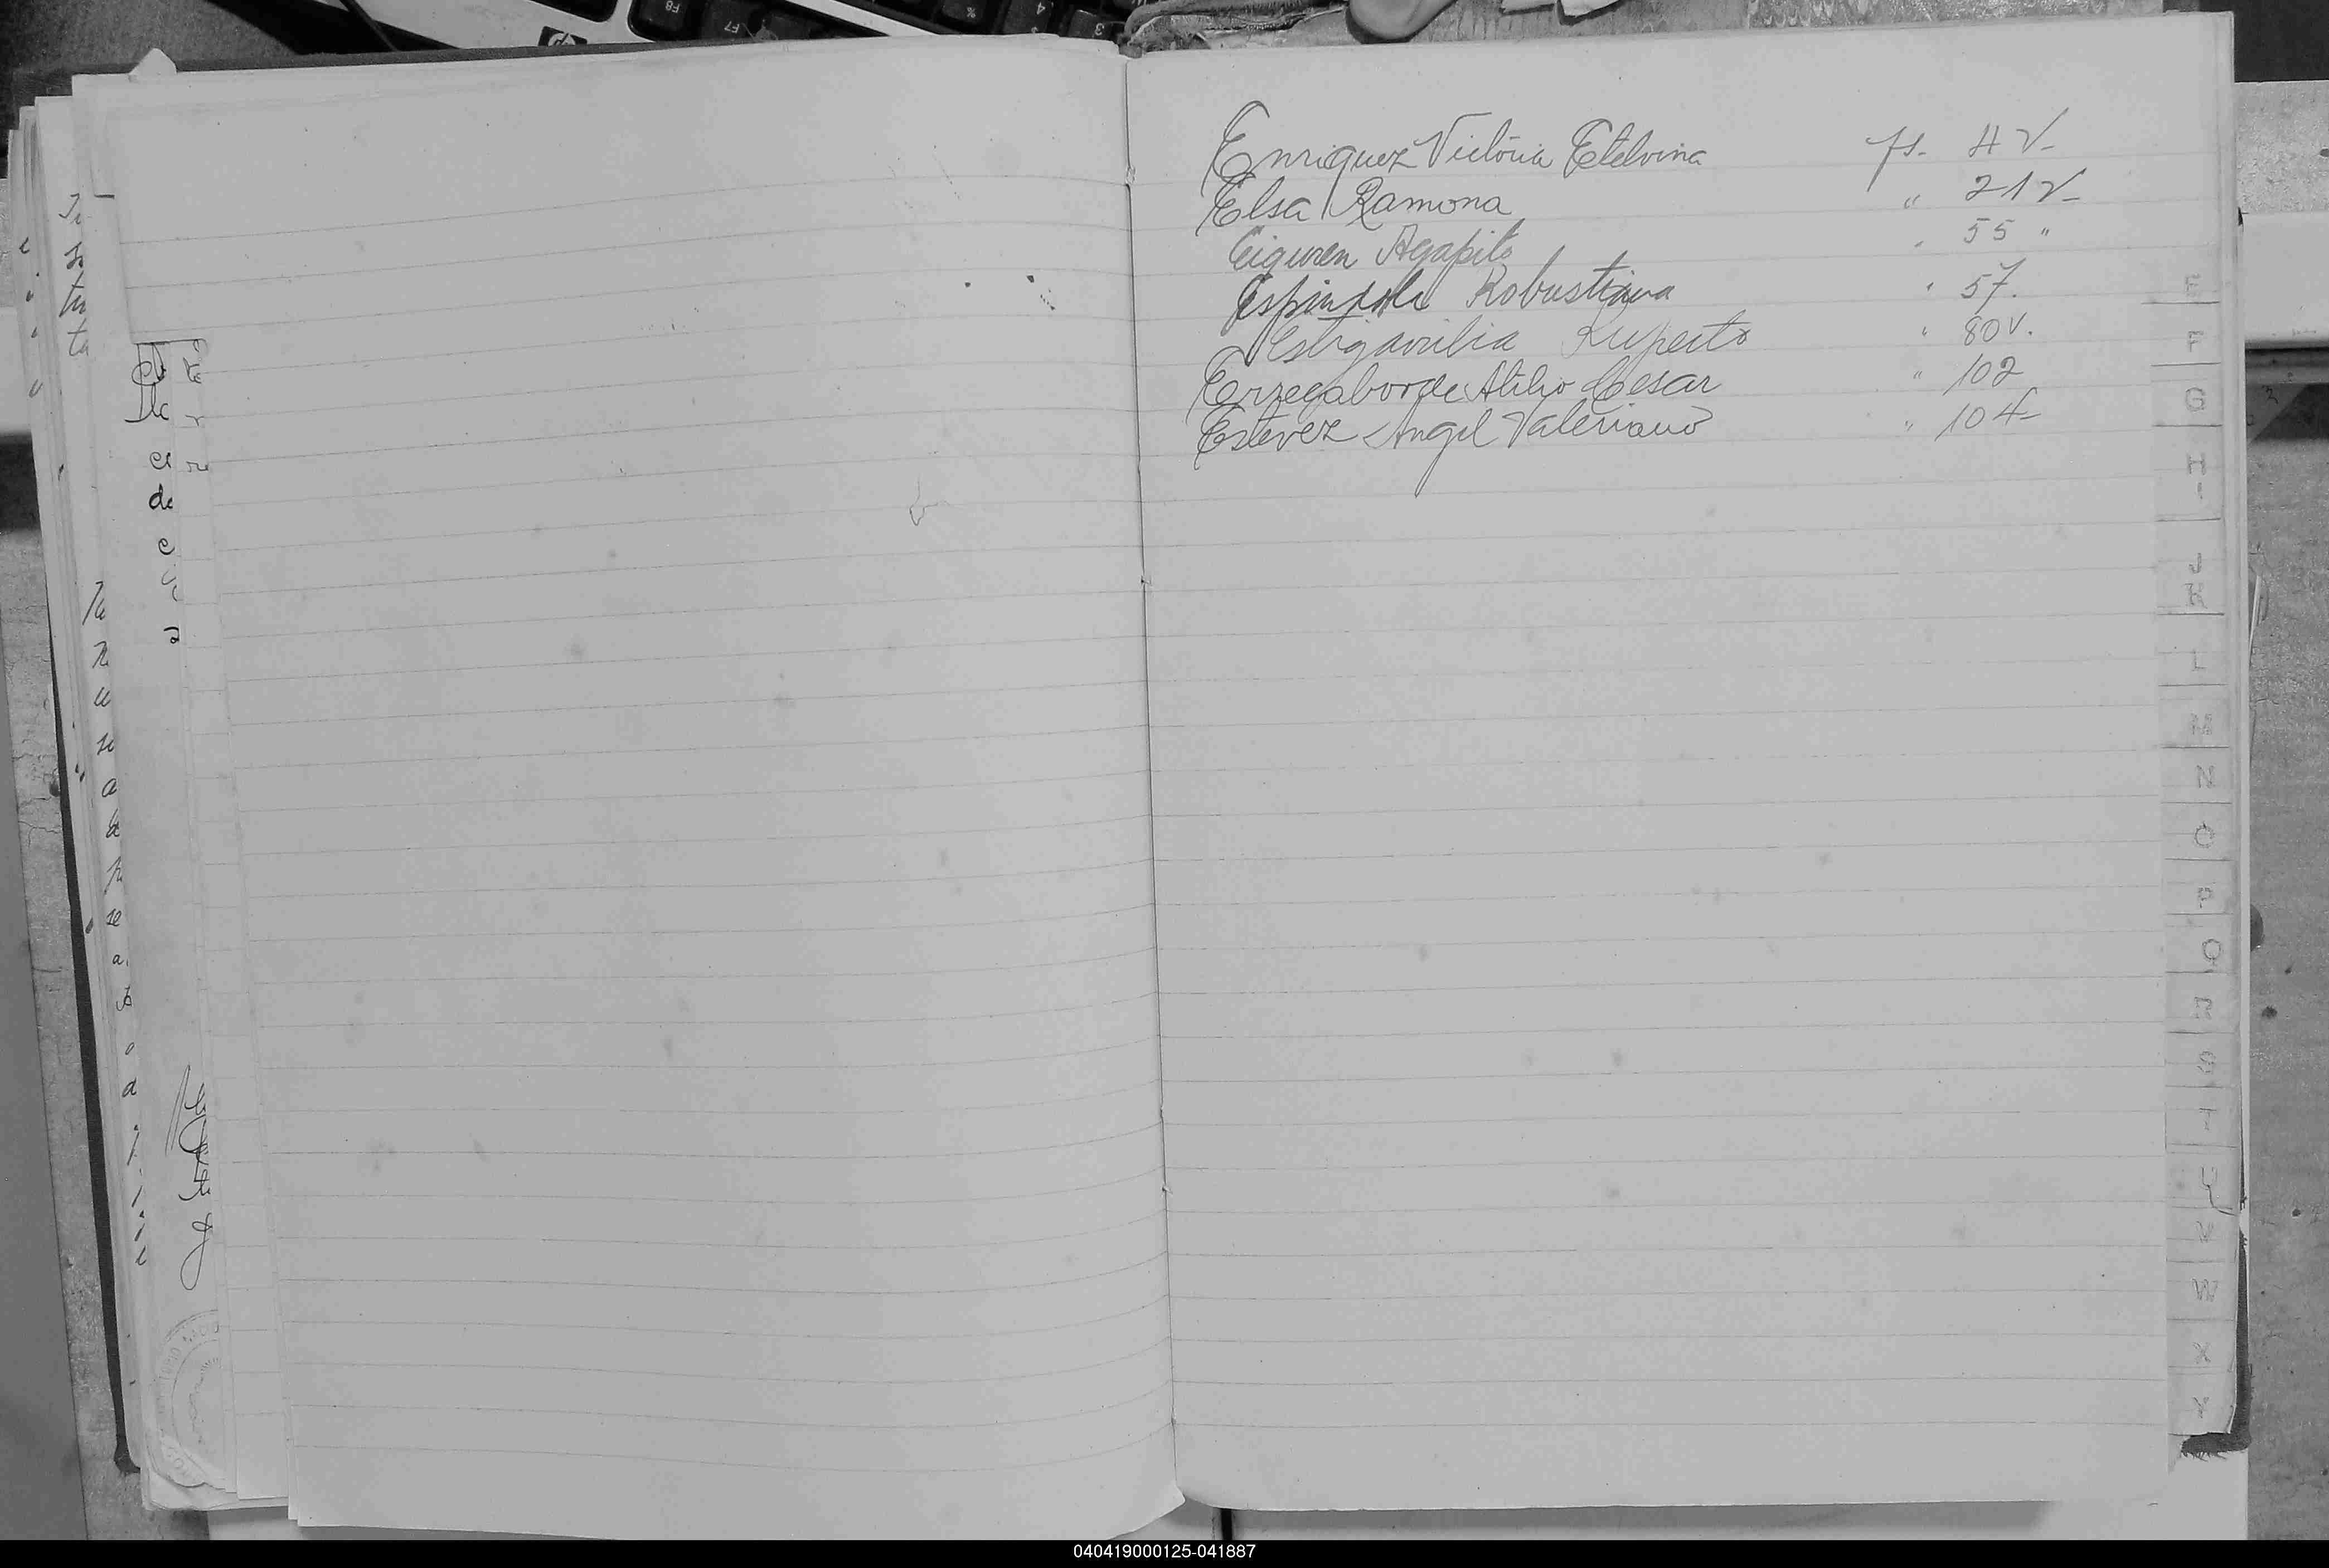 Enriquez Victoria Etelvina fs. 4 v-
Elsa Ramona " 21 v-
Eiguren Agapito " 55 "
Espindola Robustiana " 57.
Estigarribia Ruperto " 80 v.
Errecaborde Atilio Cesar " 102
Estevez Angel Valeriano " 104-
E
F
G
H
I
J
K
L
M
N
O
P
Q
R
S
T
U
V
W
X
Y
040419000125-041887